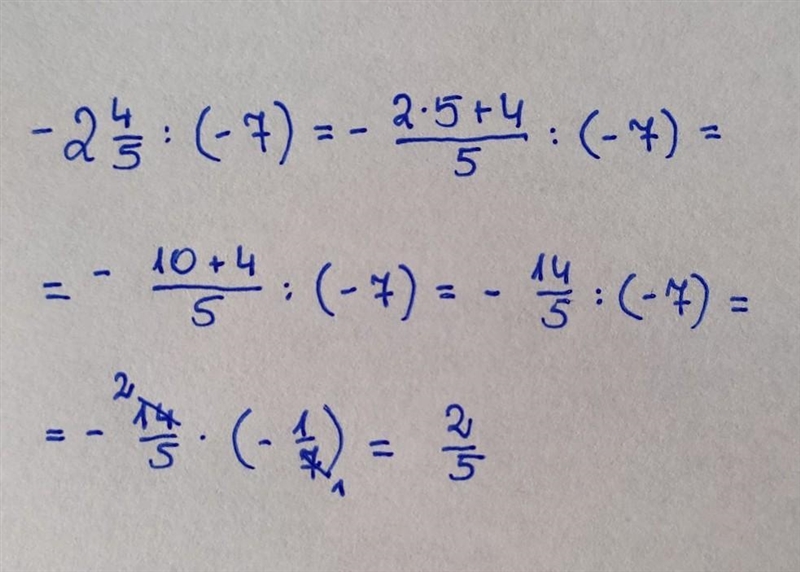 -2 4/5 : (-7) = - (2·5+4)/5 : (-7) =
= - (10+4)/5 : (-7) = - 14/5 : (-7) =
= - 2 14/5 · (- 1/7 1) = 2/5